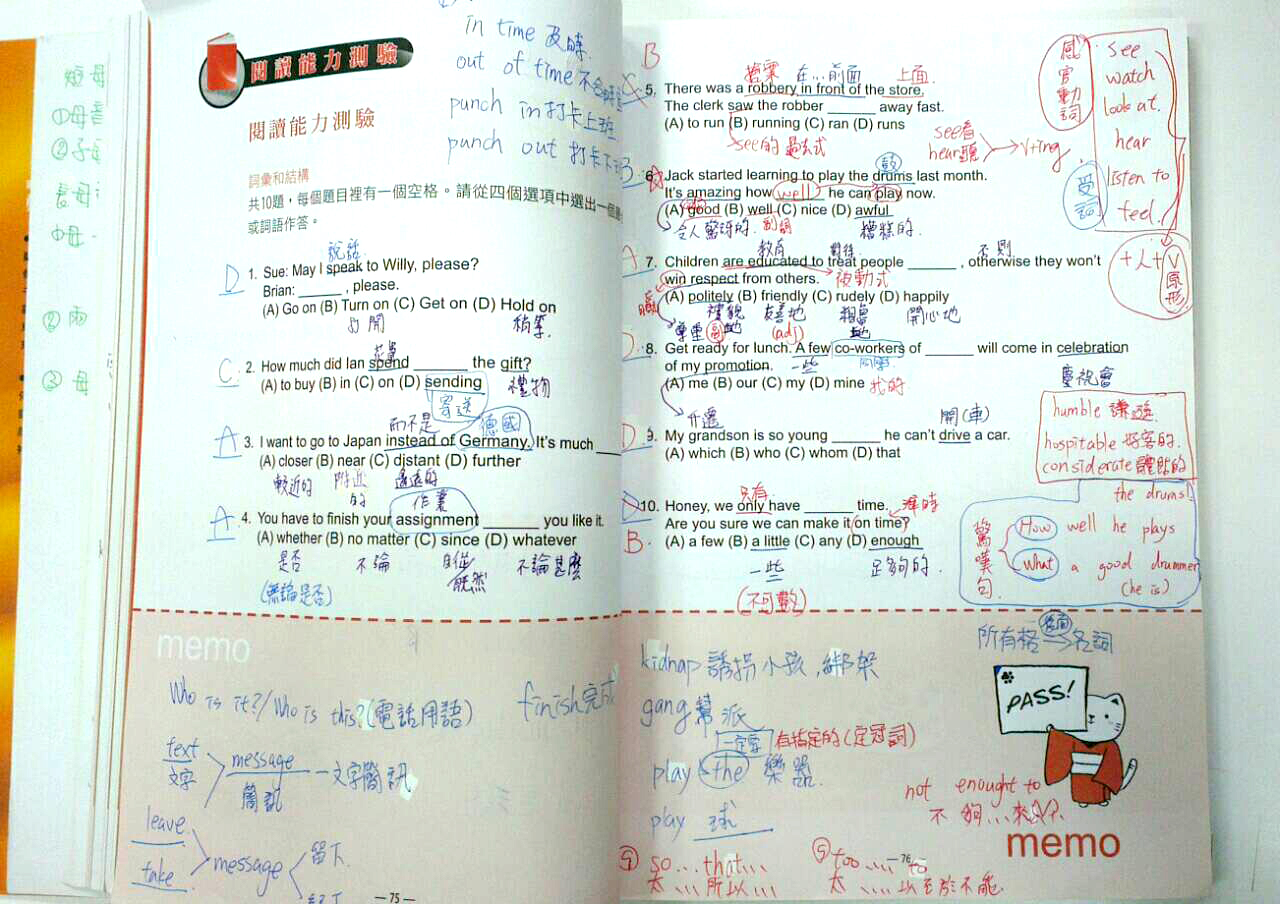 短母
①母音
②子
長母
①母
② 兩
③ 母
in time 及時.
out of time 不合時
punch in 打卡上班
punch out 打卡下
閱讀能力測驗
閱讀能力測驗
詞彙和結構
共10題,每個題目裡有一個空格。請從四個選項中選出一個最
或詞語作答。
說話
D 1. Sue: May I speak to Willy, please?
Brian: ______ , please.
(A) Go on (B) Turn on (C) Get on (D) Hold on
打開 稍等.
花費
C. 2. How much did Ian spend ______ the gift?
(A) to buy (B) in (C) on (D) sending 禮物
寄送
而不是 德國
A 3. I want to go to Japan instead of Germany. It's much ____
(A) closer (B) near (C) distant (D) further
較近的 附近的 遙遠的
作業
A 4. You have to finish your assignment ______ you like it.
(A) whether (B) no matter (C) since (D) whatever
是否 不論 自從 既然 不論甚麼
(無論是否)
memo
Who is it?/Who is this?(電話用語) finish完成
text
文字
message
簡訊
一文字簡訊
leave
take
message
留下.
— 75 —
B
搶案 在...前面 上面.
5. There was a robbery in front of the store.
The clerk saw the robber ______ away fast.
(A) to run (B) running (C) ran (D) runs
see的過去式
see看
hear聽
V+ing
感官動詞
see
watch
look at.
hear
listen to
feel.
受詞
+人+V原形
鼓
6. Jack started learning to play the drums last month.
It's amazing how well he can play now.
(A) good (B) well (C) nice (D) awful
令人驚訝的. 副詞 糟糕的.
教育 對待 否則
A 7. Children are educated to treat people ______ , otherwise they won't
win respect from others. 被動式
贏
(A) politely (B) friendly (C) rudely (D) happily
禮貌地 友善地 粗魯地 開心地
尊重 副 (adj)
D 8. Get ready for lunch. A few co-workers of ______ will come in celebration
of my promotion. 一些 同事 慶祝會
(A) me (B) our (C) my (D) mine 我的
升遷 開(車)
D 9. My grandson is so young ______ he can't drive a car.
(A) which (B) who (C) whom (D) that
humble 謙遜.
hospitable 好客的.
considerate 體貼的
只有
10. Honey, we only have ______ time. 準時
Are you sure we can make it on time?
B. (A) a few (B) a little (C) any (D) enough
一些 足夠的.
(不可數)
the drums!
驚嘆句
How well he plays
What a good drummer
(he is)
所有格 後面 名詞
kidnap 誘拐小孩,綁架
gang 幫派
一定要 有指定的(定冠詞)
play the 樂器.
play 球
PASS!
not enought to
不夠...來
memo
— 76 —
④ so...that...
太...所以...
⑤ too ..... to
太....以至於不能.